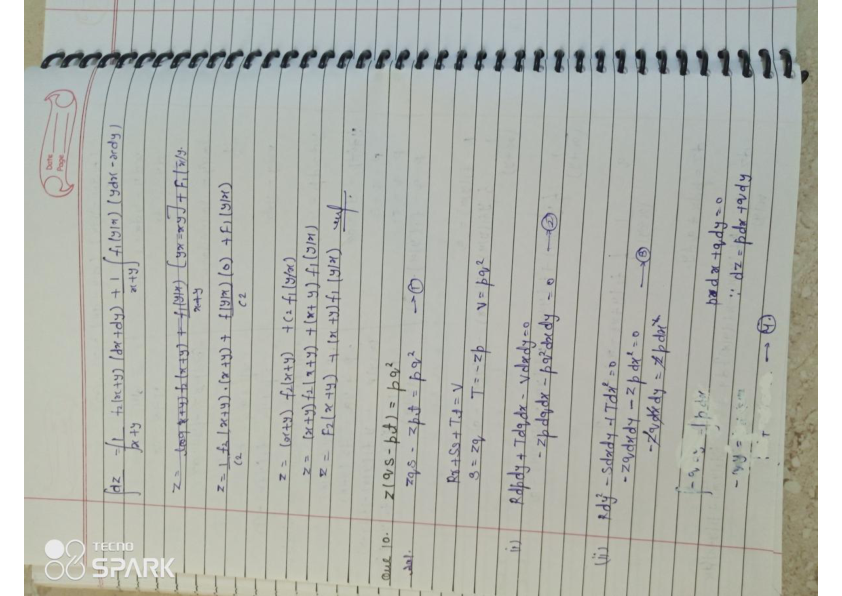 Date
Page
∫dz = ∫ 1/x+y f2(x+y) (dx+dy) + 1/x+y ∫ f1(y/x) (ydx-xdy)
z = log(x+y) f2(x+y) + f1(y/x)/x+y [yx-xy] + F1(x/y
z = 1/c2 f2(x+y)·(x+y) + f1(y/x)/c2 (0) + F1(y/x)
z = (x+y) f2(x+y) + c2 f1(y/x)
z = (x+y) f2(x+y) + (x+y) f1(y/x)
z = F2(x+y) + (x+y) f1(y/x)
Que 10. z(qs-pt) = pq²
Sol. zqs - zpt = pq² → ①
Rr+Ss+Tt=V
S=zq T=-zp V=pq²
i) Rdpdy + Tdqdx - Vdxdy=0
- zpdqdx - pq²dxdy = 0 → ②
(ii) Rdy² - Sdxdy + Tdx² = 0
- zqdxdy - zpdx² = 0 → ③
- zqdxdy = zpdx²
∫-q = ∫pdx pdx + qdy = 0
-qy = ∵ dz = pdx + qdy
→ ④
TECNO
SPARK